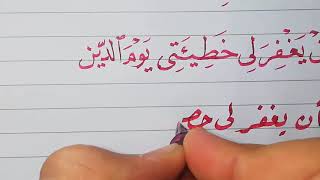 يَغْفِرَ لِى خَطِيٓئَتِى يَوْمَ ٱلدِّينِ
أن يغفر لى خط